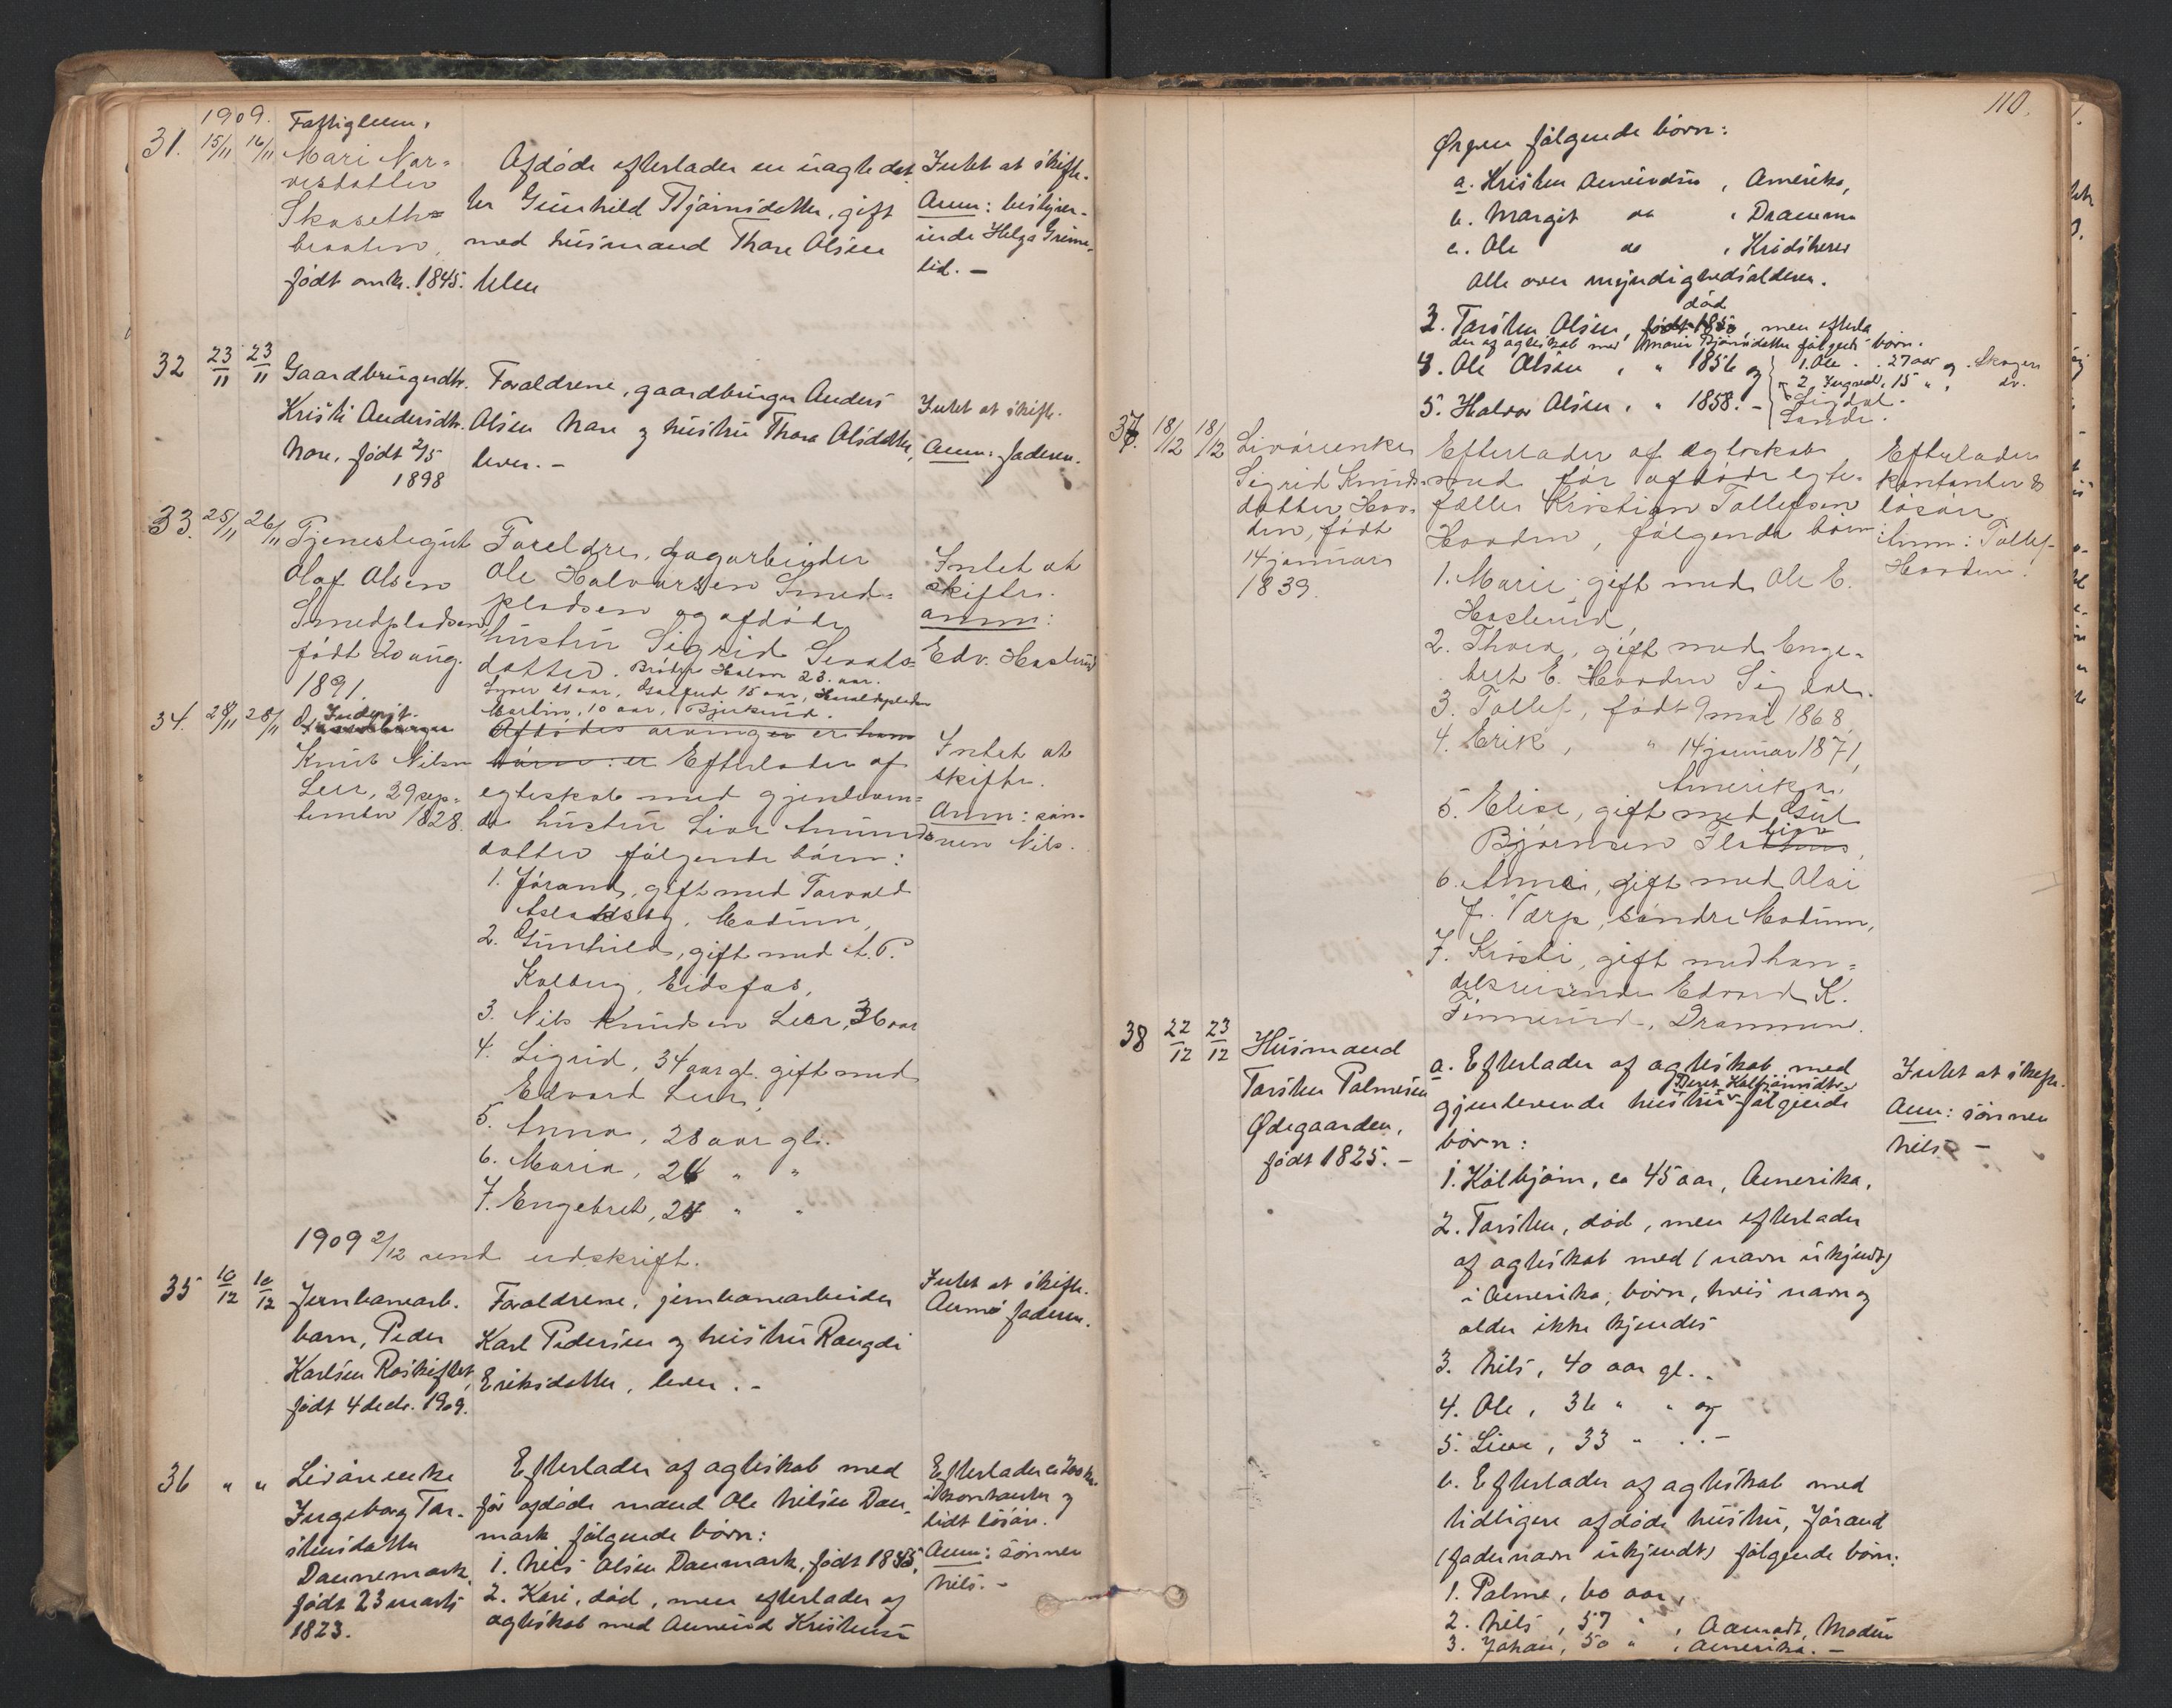 1909.
31. 15/11 16/11 Fattiglem.
Mari Nar-
vesdatter
Skaseth-
braaten,
født omk. 1845.
Afdøde efterlader en uægte dat-
ter Gunhild Bjørnsdatter, gift
med husmand Thore Olsen
Intet at skifte.
Anm: bestyrer-
inde Helga Grime-
lid. -
32 23/11 23/11 Gaardbrugerdtr.
Kristi Andersdtr.
Nore, født 2/5
1898
Forældrene, gaardbruger Anders
Olsen Nore og hustru Thora Olsdatter,
lever. -
Intet at skifte.
Anm: faderen.
33. 25/11 26/11 Tjenestegut
Olaf Olsen
Smedpladsen,
født 20 aug.
1891.
Foreldre, dagarbeider
Ole Halvorsen Smed-
pladsen og afdøde
hustru Sigrid
datter. Brødre Halvor 23 aar.
21 aar, 15 aar,
Martin, 10 aar,
Intet at
skifte.
anm:
Edv. Haslerud
34. 28/11 28/11 Inderst
Knut Nilsen
Leer, 29 sep-
tember 1828.
Afdødes arvinger er hans
børn: er Efterlader af
egteskab med gjenleven-
de hustru Live Amunds-
datter følgende børn:
1. Jørand, gift med Torvald
Modum,
2. Gunhild, gift med A. P.
Kolberg, Eidsfos,
3. Nils Knudsen Leer, 36 aar
4. Sigrid, 34 aar gl. gift med
Edvard Leer,
5. Anna, 28 aar gl.
6. Maria, 26 " "
7. Engebret, 24 " "
Intet at
skifte.
Anm: søn-
nen Nils.
1909 2/12 send udskrift.
35 10/12 10/12 Jernbanearb.
barn, Peder
Karlsen Roskiftet,
født 4 decb. 1909.
Forældrene, jernbanearbeider
Karl Pedersen og hustru Rangdi
Eriksdatter, lever. -
Intet at skifte.
Anm: faderen.
36 " " Livørenke
Ingeborg Tor-
stensdatter
Dannemark,
født 23 marts
1823.
Efterlader af ægteskab med
før afdøde mand Ole Nilsen Dan-
mark følgende børn:
1. Nils Olsen Danmark, født 1845,
2. Kari, død, men efterlader af
ægteskab med Amund Kristensen
Efterlader ca 200 kr.
i kontanter og
lidt løsøre.
Anm: sønnen
Nils. -
110.
følgende børn:
a. Kristen Amundsen, Amerika,
b. Margit do , Drammen
c. Ole do , Krødsherred
Alle over myndighedsalderen.
3. Torsten Olsen, født 1850 død, men efterla-
der af ægteskab med Marie Bjørnsdatter følgende børn.
1. Ole . . 27 aar og Skogen
2. Ingvald, 15 " , do.
4. Ole Olsen, " 1856 og Sigdal.
5. Halvor Olsen, " 1858. - Sande.
37. 18/12 18/12 Livørenke
Sigrid Knuds-
datter Hov-
den, født
14 januar
1839.
Efterlader af egteskab
med før afdøde egte-
fælle Kristian Tollefsen
Hovden, følgende børn
1. Marie, gift med Ole E.
Haslerud,
2. Thora, gift med Enge-
bret E. Hovden Sigdal.
3. Tollef, født 9 mai 1868,
4. Erik, " 14 januar 1871,
Amerika,
5. Elise, gift med Gul
Bjørnsen
6. Anna, gift med Olai
J. Værp, søndre Modum,
7. Kristi, gift med han-
delsreisende Edvard K.
Finnerud, Drammen.
Efterlader
kontanter &
løsøre
Anm: Tollef
Hovden.
38 22/12 23/12 Husmand
Torsten Palmesen
Ødegaarden,
født 1825. -
a. Efterlader af ægteskab med
gjenlevende hustru Beret Kolbjørnsdtr. følgende
børn:
1. Kolbjørn, ca 45 aar, Amerika.
2. Torsten, død, men efterlader
af ægteskab med (navn ukjendt)
i Amerika, børn, hvis navn og
alder ikke kjendes
3. Nils, 40 aar gl. .
4. Ole, 36 " " og
5. Live, 33 " . . -
b. Efterlader af ægteskab med
tidligere afdøde hustru, Jørand
(fadernavn ukjendt) følgende børn:
1. Palme, 60 aar,
2. Nils, 57 " , Aamodt, Modum
3. Johan, 50 " , Amerika. -
Intet at skifte.
Anm: sønnen
Nils -